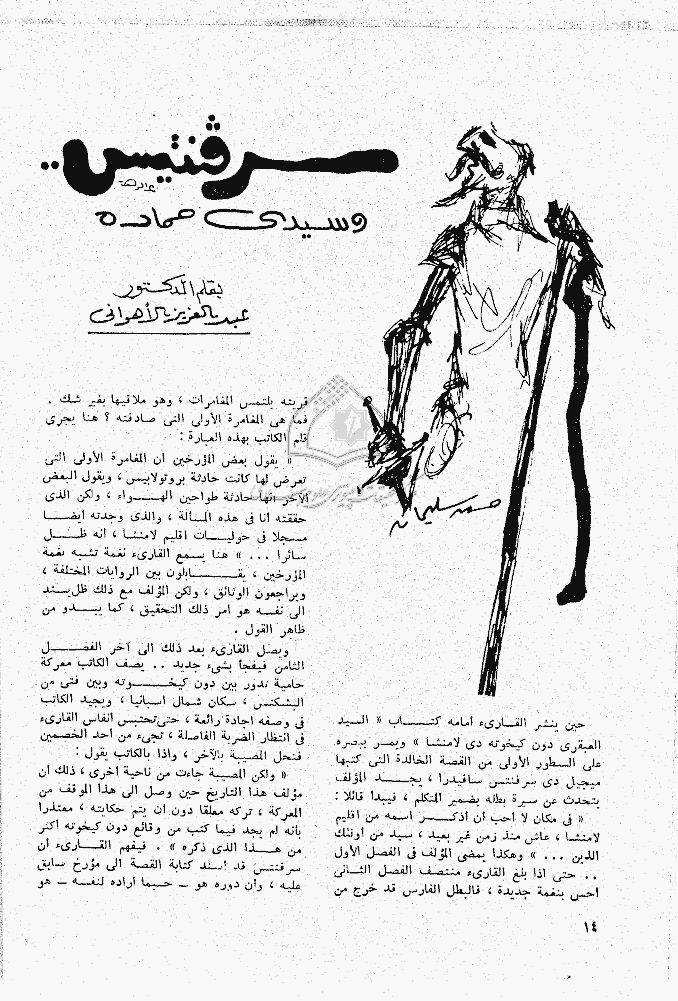 سرڤنتيس ..
وسيدى حماده
بقلم الدكتور
عبد العزيز الأهوانى
حين ينشر القـارىء أمامه كتــاب « السيد
العبقرى دون كيخوته دى لامنشا » ويمــر ببصره
على السطور الأولى من القصة الخالدة التى كتبها
ميجيل دى سرفنتس سافيدرا ، يجــد المؤلف
يتحدث عن سيرة بطله بضمير المتكلم ، فيبدأ قائلا :
« فى مكان لا أحب أن أذكــر اسمه من اقليم
لامنشا ، عاش منذ زمن غير بعيد ، سيد من أولئك
الذين ... » وهكذا يمضى المؤلف فى الفصل الأول
.. حتى اذا بلغ القارىء منتصف الفصل الثـانى
أحس بنغمة جديدة ، فالبطل الفارس قد خرج من
قريته يلتمس المغامرات ، وهو ملاقيها بغير شك .
فما هى المغامرة الأولى التى صادفته ؟ هنا يجرى
قلم الكاتب بهذه العبارة :
« يقول بعض المؤرخين ان المغامرة الأولى التى
تعرض لها كانت حادثة برونولابيس ، ويقول البعض
الآخر انها حادثة طواحين الهــواء ، ولكن الذى
حققته أنا فى هذه المسألة ، والذى وجدته أيضـا
مسجلا فى حوليـات اقليم لامنشا ، أنه ظــل
سائرا ... » هنا يسمع القارىء نغمة تشبه نغمة
المؤرخين ، يقــابلون بين الروايات المختلفة ،
ويراجعون الوثائق ، ولكن المؤلف مع ذلك ظل يسند
الى نفسه هو أمر ذلك التحقيق ، كما يبــدو من
ظاهر القول .
ويصل القارىء بعد ذلك الى آخر الفصــل
الثامن فيفجأ بشىء جديد .. يصف الكاتب معركة
حامية تدور بين دون كيخــوته وبين فتى من
البشكنس ، سكان شمال اسبانيا ، ويجيد الكاتب
فى وصفه اجادة رائعة ، حتى تحتبس أنفاس القارىء
فى انتظار الضربة الفاصلة ، تجىء من أحد الخصمين
فتحل المصيبة بالآخر ، واذا بالكاتب يقول :
« ولكن المصيبة جاءت من ناحية أخرى ، ذلك أن
مؤلف هذا التاريخ حين وصل الى هذا الموقف من
المعركة ، تركه معلقا دون أن يتم حكايته ، معتذرا
بأنه لم يجد فيما كتب من وقائع دون كيخوته أكثر
من هــذا الذى ذكره » . فيفهم القــارىء أن
سرفنتيس قد أسند كتابة القصة الى مؤرخ سابق
عليه ، وأن دوره هو ــ حسبما أراده لنفسه ــ هو
١٤